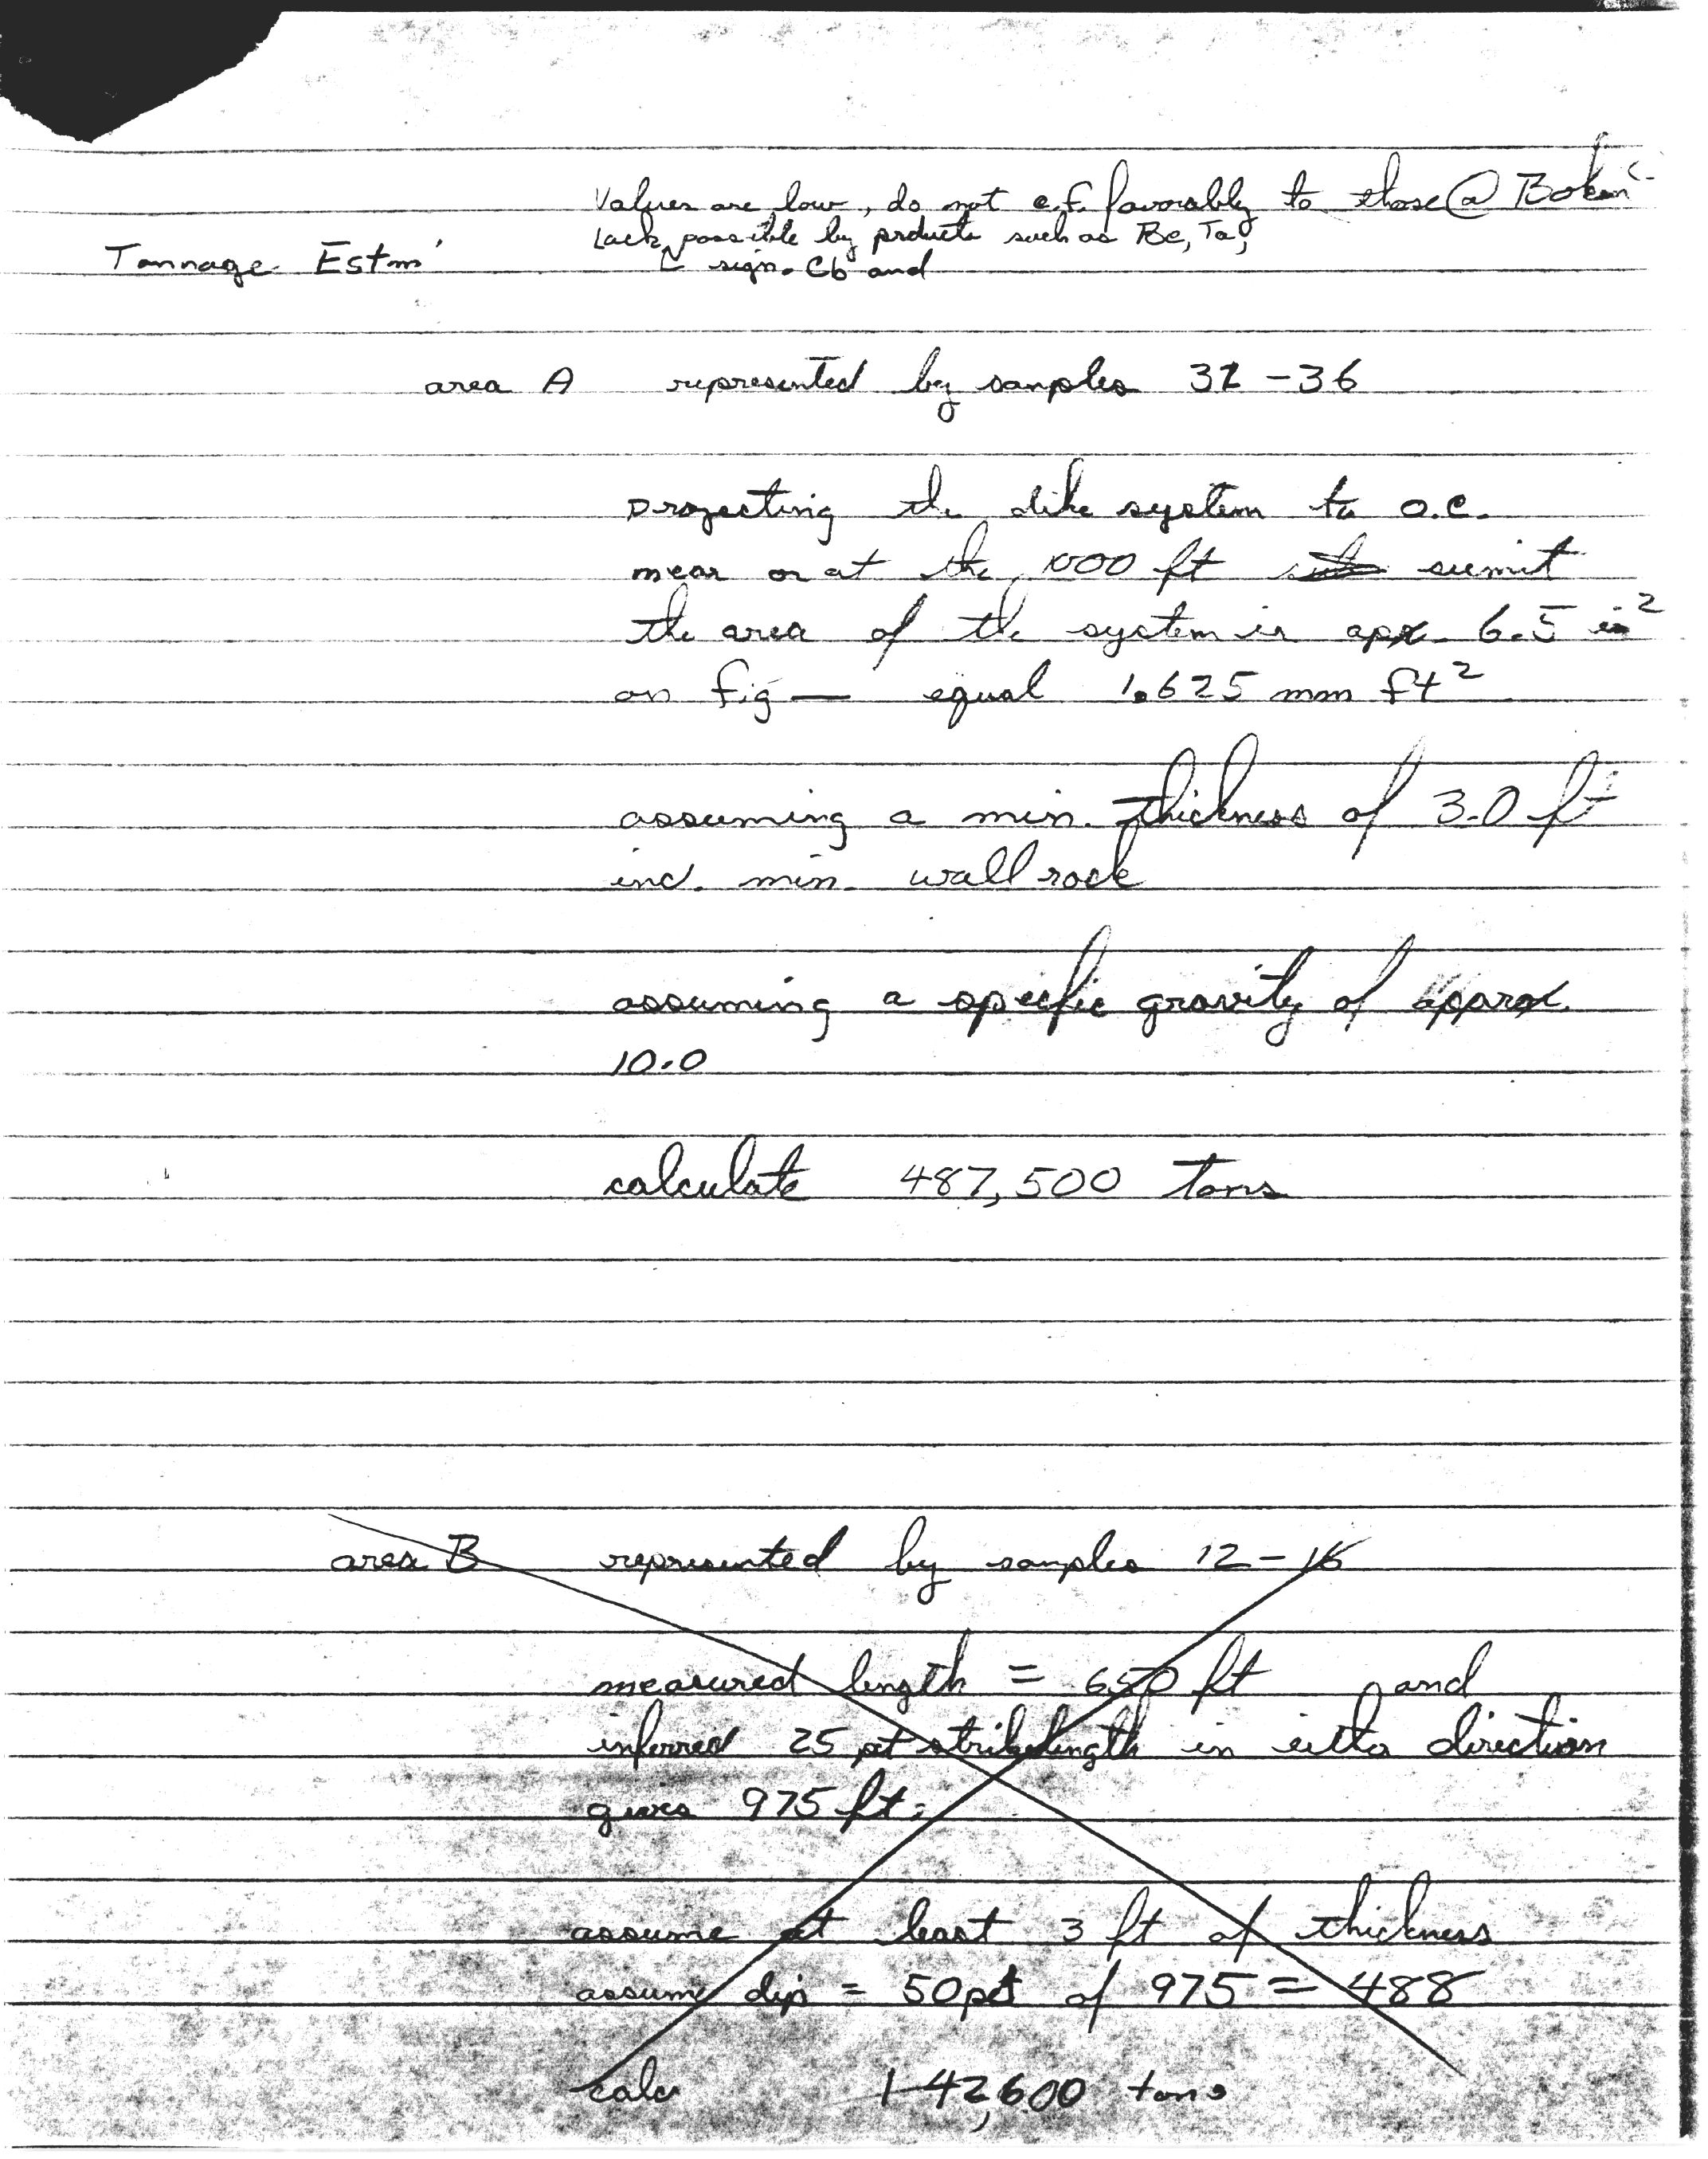 Values are low, do not c.f. favorably to those @ Bokan
Lack possible by products such as Be, Ta,
sign. Cb and
Tonnage Estm'
area A represented by samples 32-36
projecting the dike system to o.c.
near or at the 1000 ft sumit
the area of the system is apx. 6.5 in²
on fig — equal 1.625 mm ft²
assuming a min. thickness of 3.0 ft
incl. min. wall rock
assuming a specific gravity of approx.
10.0
calculate 487,500 tons
area B represented by samples 12-16
measured length = 650 ft and
inferred 25 pct strikelength in either direction
gives 975 ft.
assume at least 3 ft of thickness
assume dip = 50 pct of 975 = 488
calc 142,600 tons